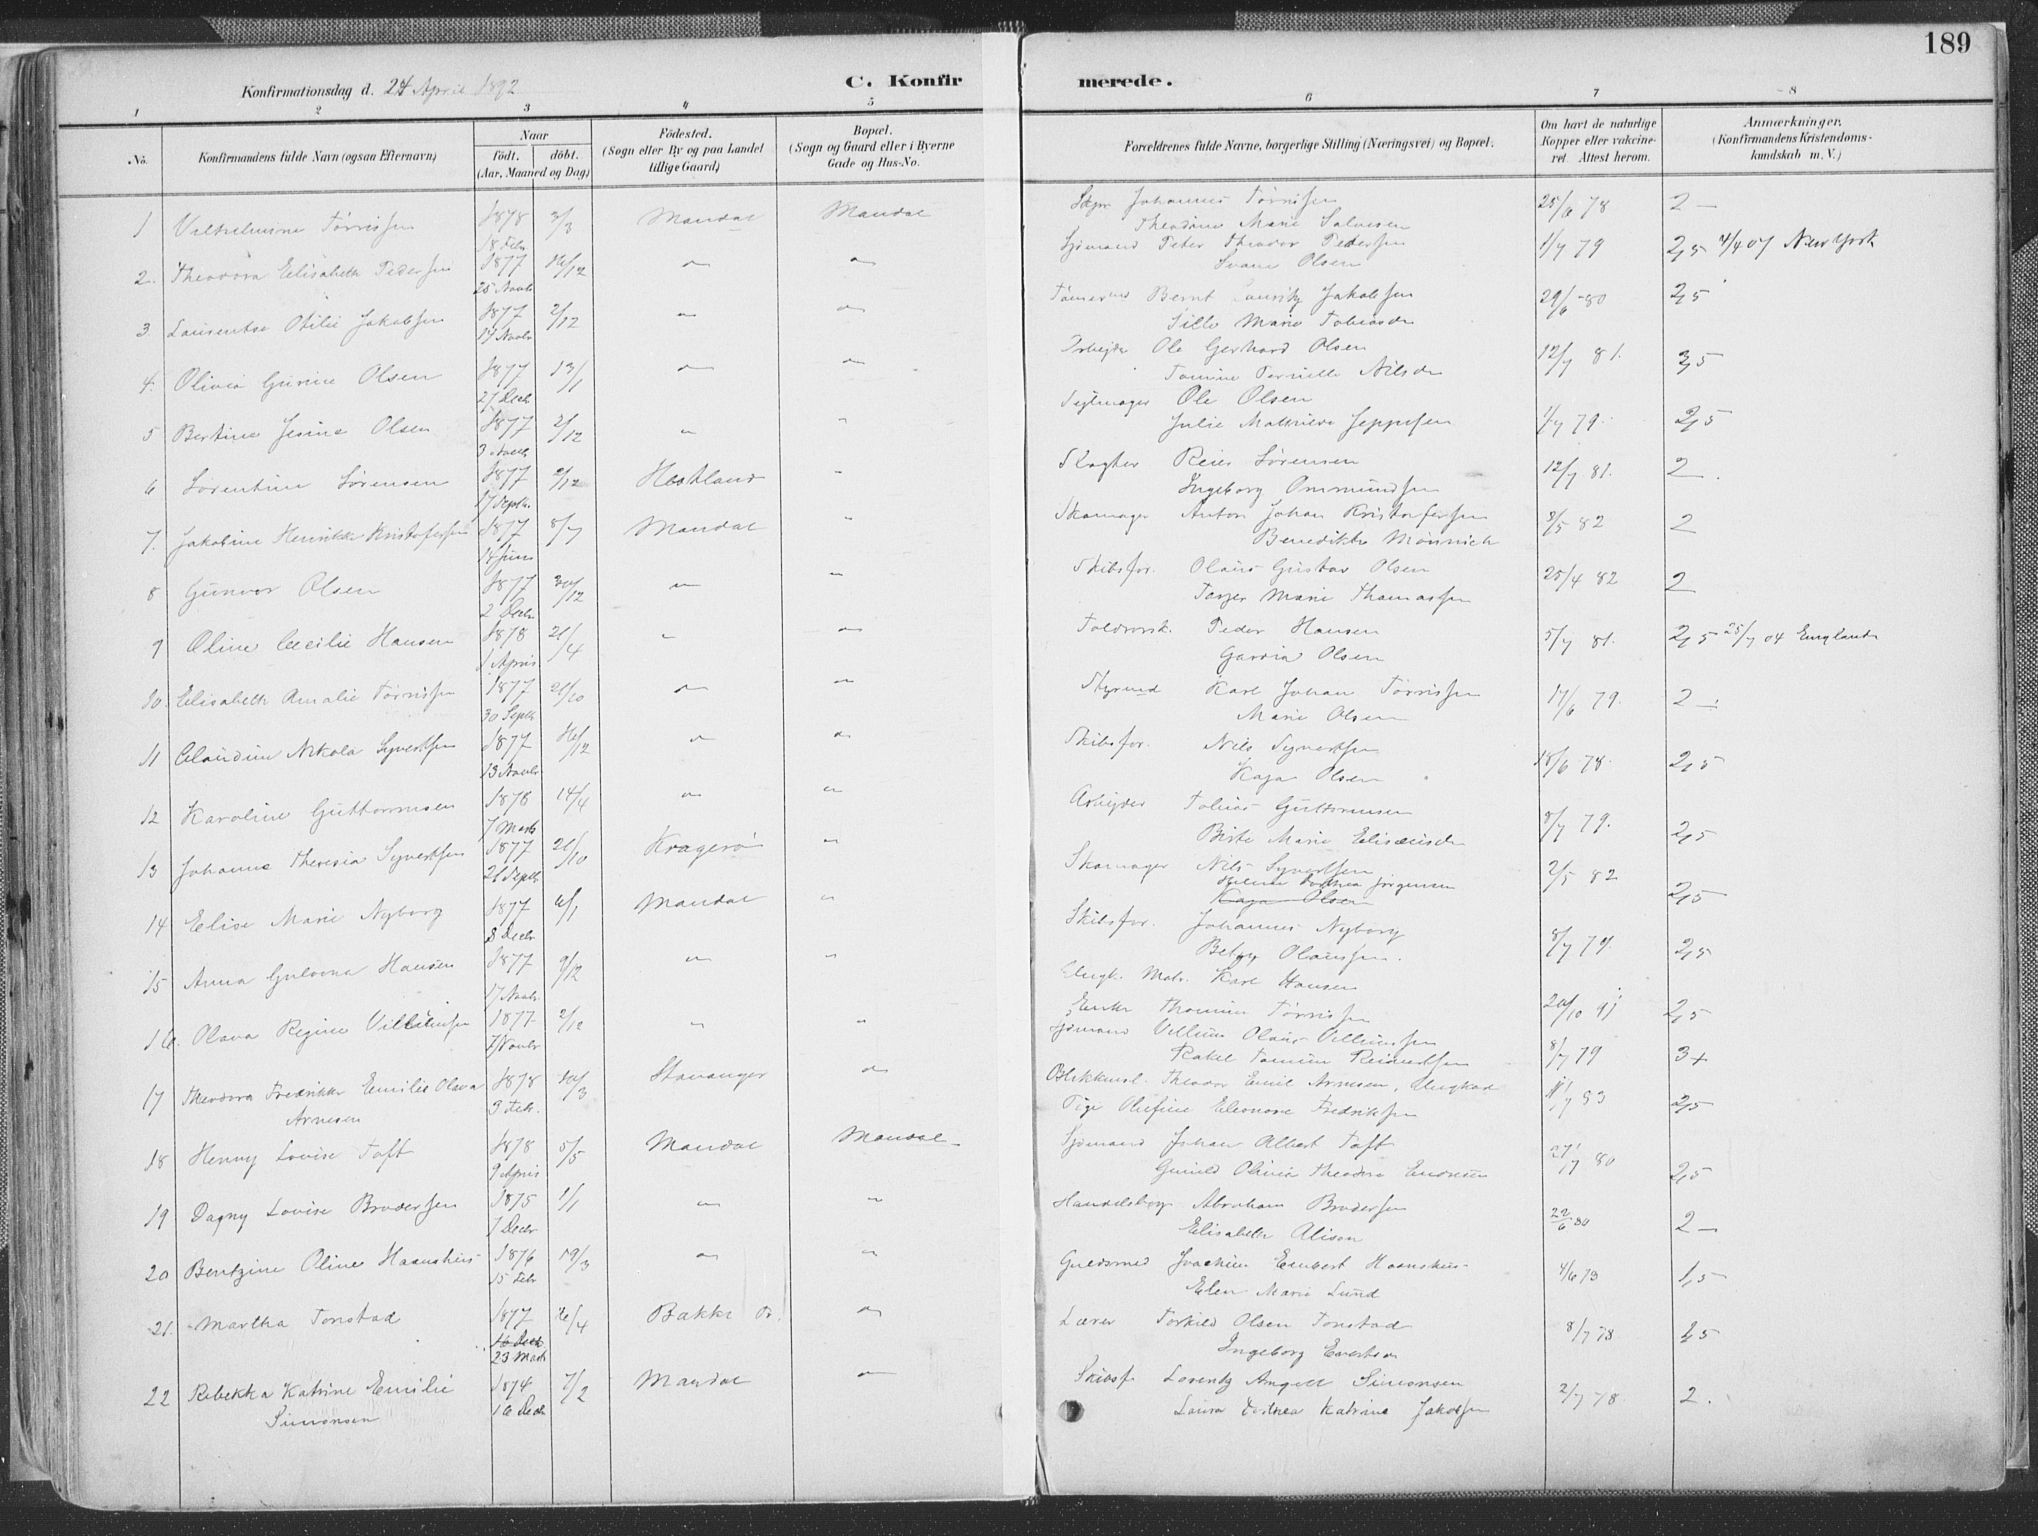 189
Konfirmationsdag d. 24 April 1892
C. Konfirmerede.
1 2 3 4 5 6 7 8
No.
Konfirmandens fulde Navn (ogsaa Efternavn)
Naar
födt. döbt.
(Aar, Maaned og Dag)
Födested.
(Sogn eller By og paa Landet tillige Gaard)
Bopæl.
(Sogn og Gaard eller i Byerne Gade og Hus-No.
Forældrenes fulde Navne, borgerlige Stilling (Næringsvei) og Bopæl.
Om havt de naturlige Kopper eller vakcineret. Attest herom.
Anmærkninger.
(Konfirmandens Kristendomskundskab m. V.)
1 Vilhelmine Tørrissen 1878 18 Febr 3/3 Mandal Mandal Skpr Johannes Tørrissen 25/6 78 2 —
Theodine Marie Salvesen
2. Theodora Elisabeth Pedersen 1877 25 Novbr 16/12 " " Sjømand Peter Theodor Pedersen 1/7 79 2,5 4/4 07 New York
Svane Olsen
3 Laurentse Otilie Jakobsen 1877 17 Novbr 2/12 " " Tømermd Bernt Lauritz Jakobsen 29/6 80 2,5
Sille Marie Tobiasdr
4. Olivia Gurine Olsen 1877 27 Decbr 13/1 " " Arbejder Ole Gerhard Olsen 12/7 81. 3,5
Tomine Pernille Nilsdr
5 Bertine Jesine Olsen 1877 3 Novbr 2/12 " " Sejlmager Ole Olsen 1/7 79. 2,5
Julie Mathilde Jeppesen
6 Sørentine Sørensen 1877 17 Septb. 2/12 " Slagter Reier Sørensen 12/7 81. 2.
Ingeborg Ommundsen
7. Jakobine Henrikke Kristofersen 1877 18 Juni 8/7 Mandal " Skomager Anton Johan Kristofersen 2/5 82 2
Benedikte Mönnich
8 Gunvor Olsen 1877 2 Decbr 30/12 " " Skibsfør. Olaus Gustav Olsen 25/4 82 2
Torjer Marie Thomassen
9 Oline Cecilie Hansen 1878 1 April 21/4 " " Toldrorsk. Peder Hansen 5/7 81. 2,5 25/7 04 England
Olsen
10. Elisabeth Amalie Tørrissen 1877 30 Septb 21/10 " " Styrmd Karl Johan Tørrissen 17/6 79. 2 —
Marie Olsen
11 Claudine Nikola Syvertsen 1877 13 Novbr 16/12 " " Skibsfør. Nils Syvertsen 18/6 78. 2,5
Kaja Olsen
12 Karoline Guttormsen 1878 7 Marts 14/4 " " Arbejder Tobias Guttormsen 8/7 79. 2,5
Birte Marie Elisæusdr
13 Johanne Theresia Syvertsen 1877 21 Septb 21/10 Kragerø " Skomager Nils Syvertsen 2/5 82 2,5
Helene Dorthea Jørgensen
Kaja Olsen
14 Elise Marie Nyborg 1877 8 Decbr 6/1 Mandal " Skibsfør. Johannes Nyborg 8/7 79. 2,5
Betzy Olaussen.
15 Anna Gulovna Hansen 1877 17 Novbr. 9/12 " " Matr. Karl Hansen 20/10 91 2,5
Enke Thomine Tørrissen
16. Olava Regine Villumsen 1877 7 Novbr 2/12 " " Sjømand Villum Olaus Villumsen 8/7 79 3+
Rakel Tomine Reinertsen
17 Theodora Fredrikke Emilie Olava 1878 9 Febr. 10/3 Stavanger " Theodor Emil Arnesen, Ungkarl 83 2,5
Arnesen Pige Olufine Eleonore Fredriksen
18 Henny Lovise Toft 1878 9 April 5/5 Mandal Mandal Sjømand Johan Albert Toft 27/7 80 2,5
Gunild Olivia Theodora Endresen
19 Dagny Lovise Brodersen 1875 7 Decbr 1/1 " " Handelsborg Abraham Brodersen 22/6 80 2 —
Elisabeth Alison
20 Bentzine Oline Haanshus 1876 15 Febr 19/3 " " Guldsmed Joachim Embert Haanshus 4/6 79 1,5
Elen Marie Lund
21. Martha Tonstad 1877 16 Decbr 23 Marts /4 Bakke Pr. " Lærer Torkild Olsen Tonstad 8/7 78 1,5
Ingeborg Evertsen
22 Rebekka Katrine Emilie 1874 16 Decbr 7/2 Mandal " Skibsf. Lorentz Angell Simonsen 2/7 78 2.
Simonsen Laura Dorthea Katrine Jakobsen